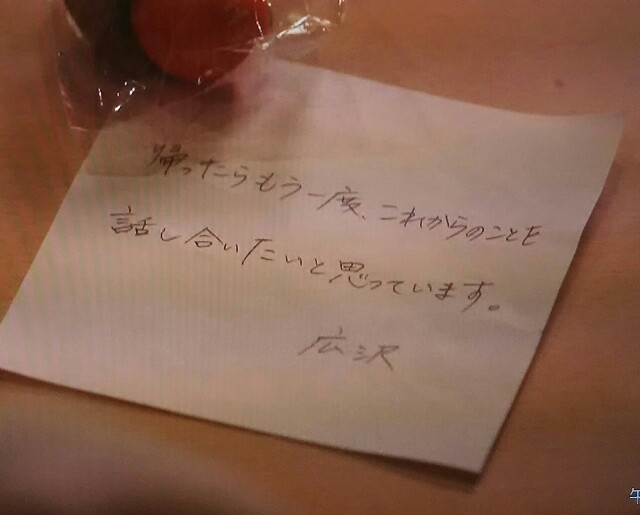 帰ったらもう一度、これからのことを
話し合いたいと思っています。
広沢
午